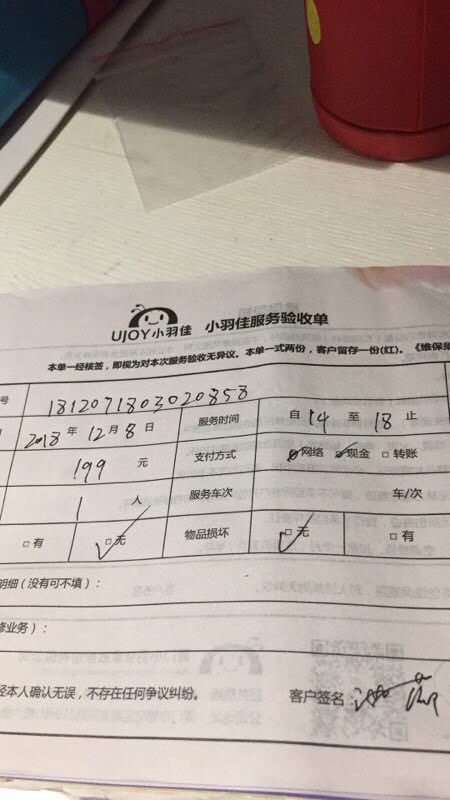 UJOY小羽佳 小羽佳服务验收单
本单一经核签，即视为对本次服务验收无异议。本单一式两份，客户留存一份(红)。《维保
号 1812071803020858
2018 年 12 月 8 日 服务时间 自 14 至 18 止
199 元 支付方式 □网络 □现金 □转账
1 人 服务车次 车/次
□有 □无 物品损坏 □无 □有
明细（没有可不填）：
修业务）：
经本人确认无误，不存在任何争议纠纷。 客户签名：